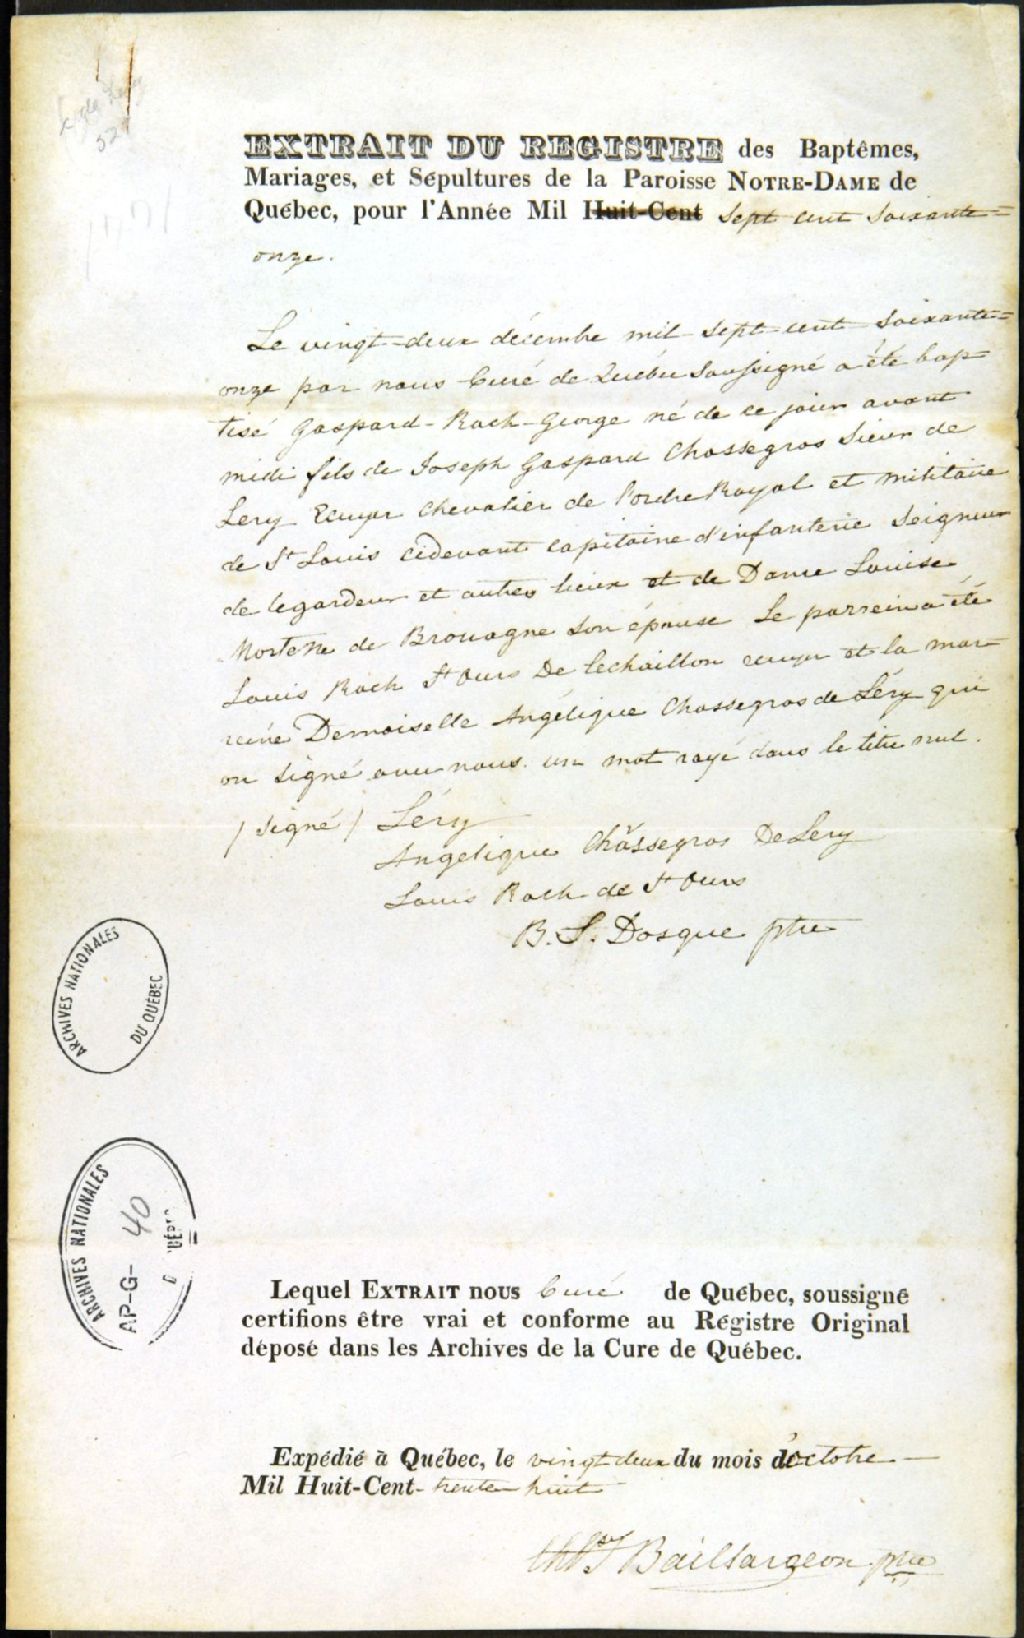 52
1771
EXTRAIT DU REGISTRE des Baptêmes,
Mariages, et Sépultures de la Paroisse NOTRE-DAME de
Québec, pour l'Année Mil Huit-Cent Sept cent Soixante=
onze.
Le vingt-deux décembre mil Sept-cent Soixante=
onze par nous Curé de Québec Soussigné a été bap
tisé Gaspard-Roch-George né de ce jour avant
midi fils de Joseph Gaspard Chassegros Sieur de
Lery Ecuyer Chevalier de l'ordre Royal et militaire
de St Louis cidevant capitaine d'infanterie Seigneur
de legardeur et autres lieux et de Dame Louise
de Brouague Son épouse Le parrein a été
Louis Roch St Ours De lechaillon ecuyer et la mar
reine Demoiselle Angélique Chassegros de Léry qui
on Signé avec nous. un mot rayé dans le titre nul.
/ signé / Léry
Angelique Chassegros De Lery
Louis Roch de St Ours
B. S. Dosque ptre
ARCHIVES NATIONALES
DU QUÉBEC
ARCHIVES NATIONALES
AP-G- 40
Lequel EXTRAIT NOUS Curé de Québec, soussigné
certifions être vrai et conforme au Régistre Original
déposé dans les Archives de la Cure de Québec.
Expédié à Québec, le vingt deux du mois d'octobre
Mil Huit-Cent- trente huit
Baillargeon ptre